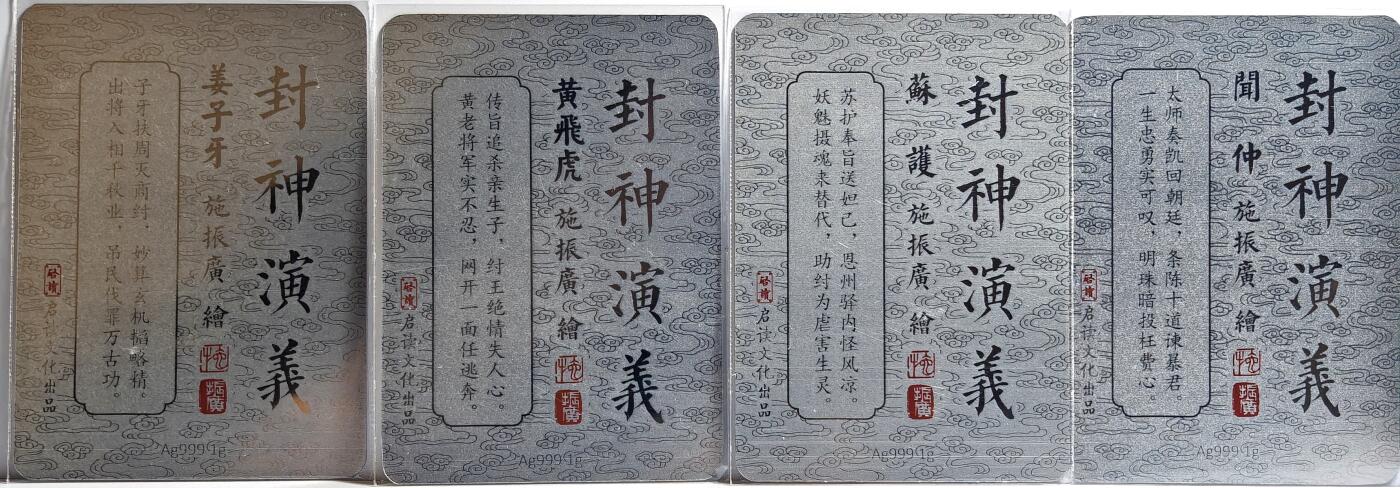 封神演義
姜子牙 施振廣 繪
子牙扶周灭商纣，妙算玄机韬略精。
出将入相千秋业，吊民伐罪万古功。
启读文化出品
Ag999 1g
封神演義
黃飛虎 施振廣 繪
振廣
传旨追杀亲生子，纣王绝情失人心。
黄老将军实不忍，网开一面任逃奔。
启读文化出品
Ag999 1g
封神演義
蘇護 施振廣 繪
振廣
苏护奉旨送妲己，恩州驿内怪风凉。
妖魅摄魂来替代，助纣为虐害生灵。
启读文化出品
Ag999 1g
封神演義
聞仲 施振廣 繪
振廣
太师奏凯回朝廷，条陈十道谏暴君。
一生忠勇实可叹，明珠暗投枉费心。
启读文化出品
Ag999 1g